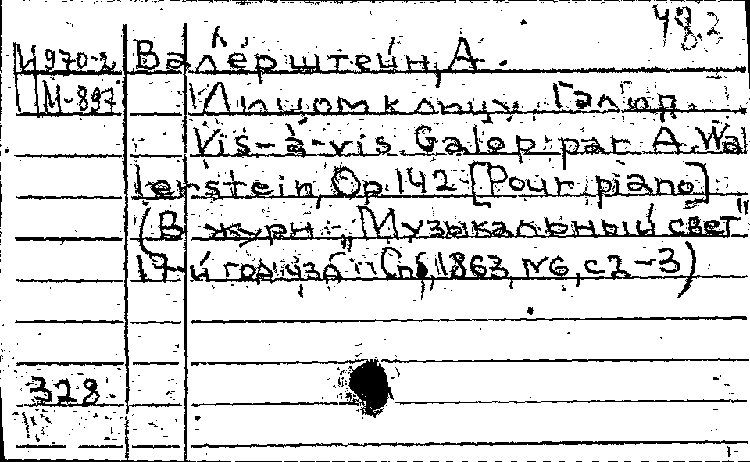 48.3
И 970-2 Валерштейн, А.
М-897 Лицом к лицу. Галоп.
Vis-à-vis. Galop par A. Wal
lerstein, Op. 142 [Pour piano]
(В журн.: „Музыкальный свет"
17-й год изд. Спб, 1863, №6, с 2-3)
328